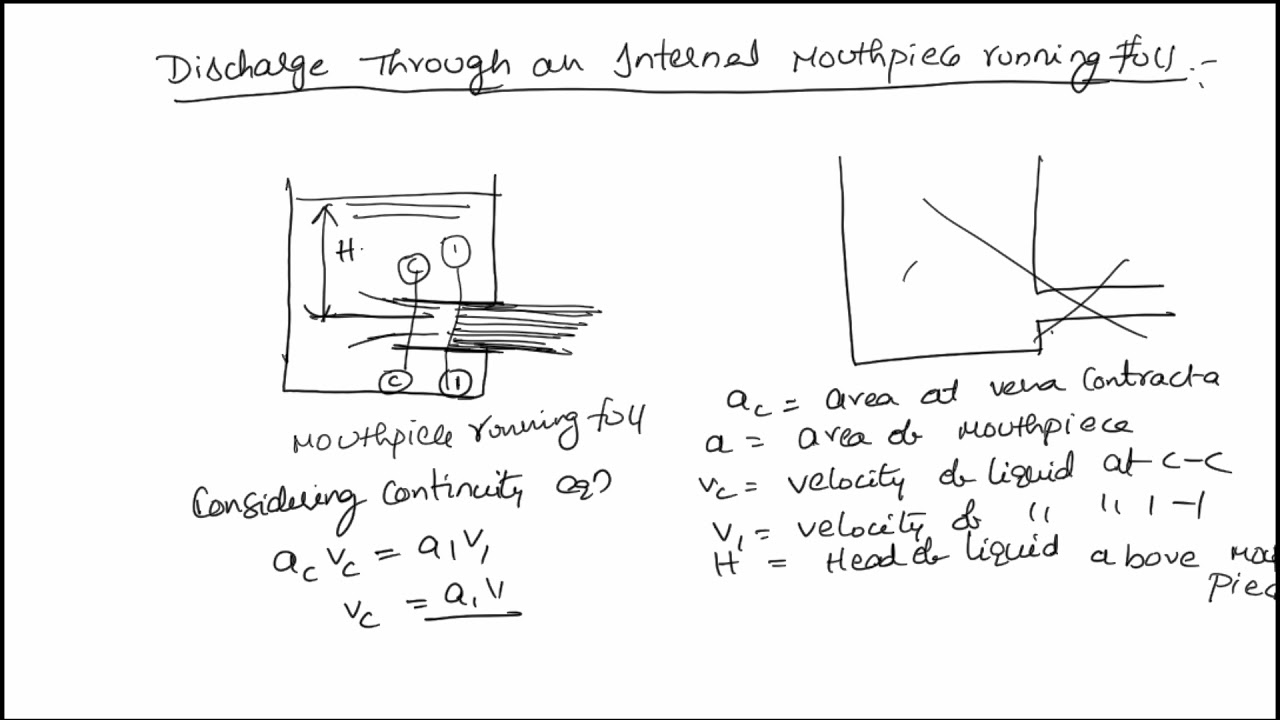 Discharge Through an Internal Mouthpiece running full :-
H
C
1
C
1
Mouthpiece running full
Considering continuity eqn
ac vc = a1 v1
vc = a1 v
ac = area at vena Contracta
a = area of mouthpiece
vc = velocity of liquid at c-c
v1 = velocity of " " 1-1
H = Head of liquid above mou
Piec